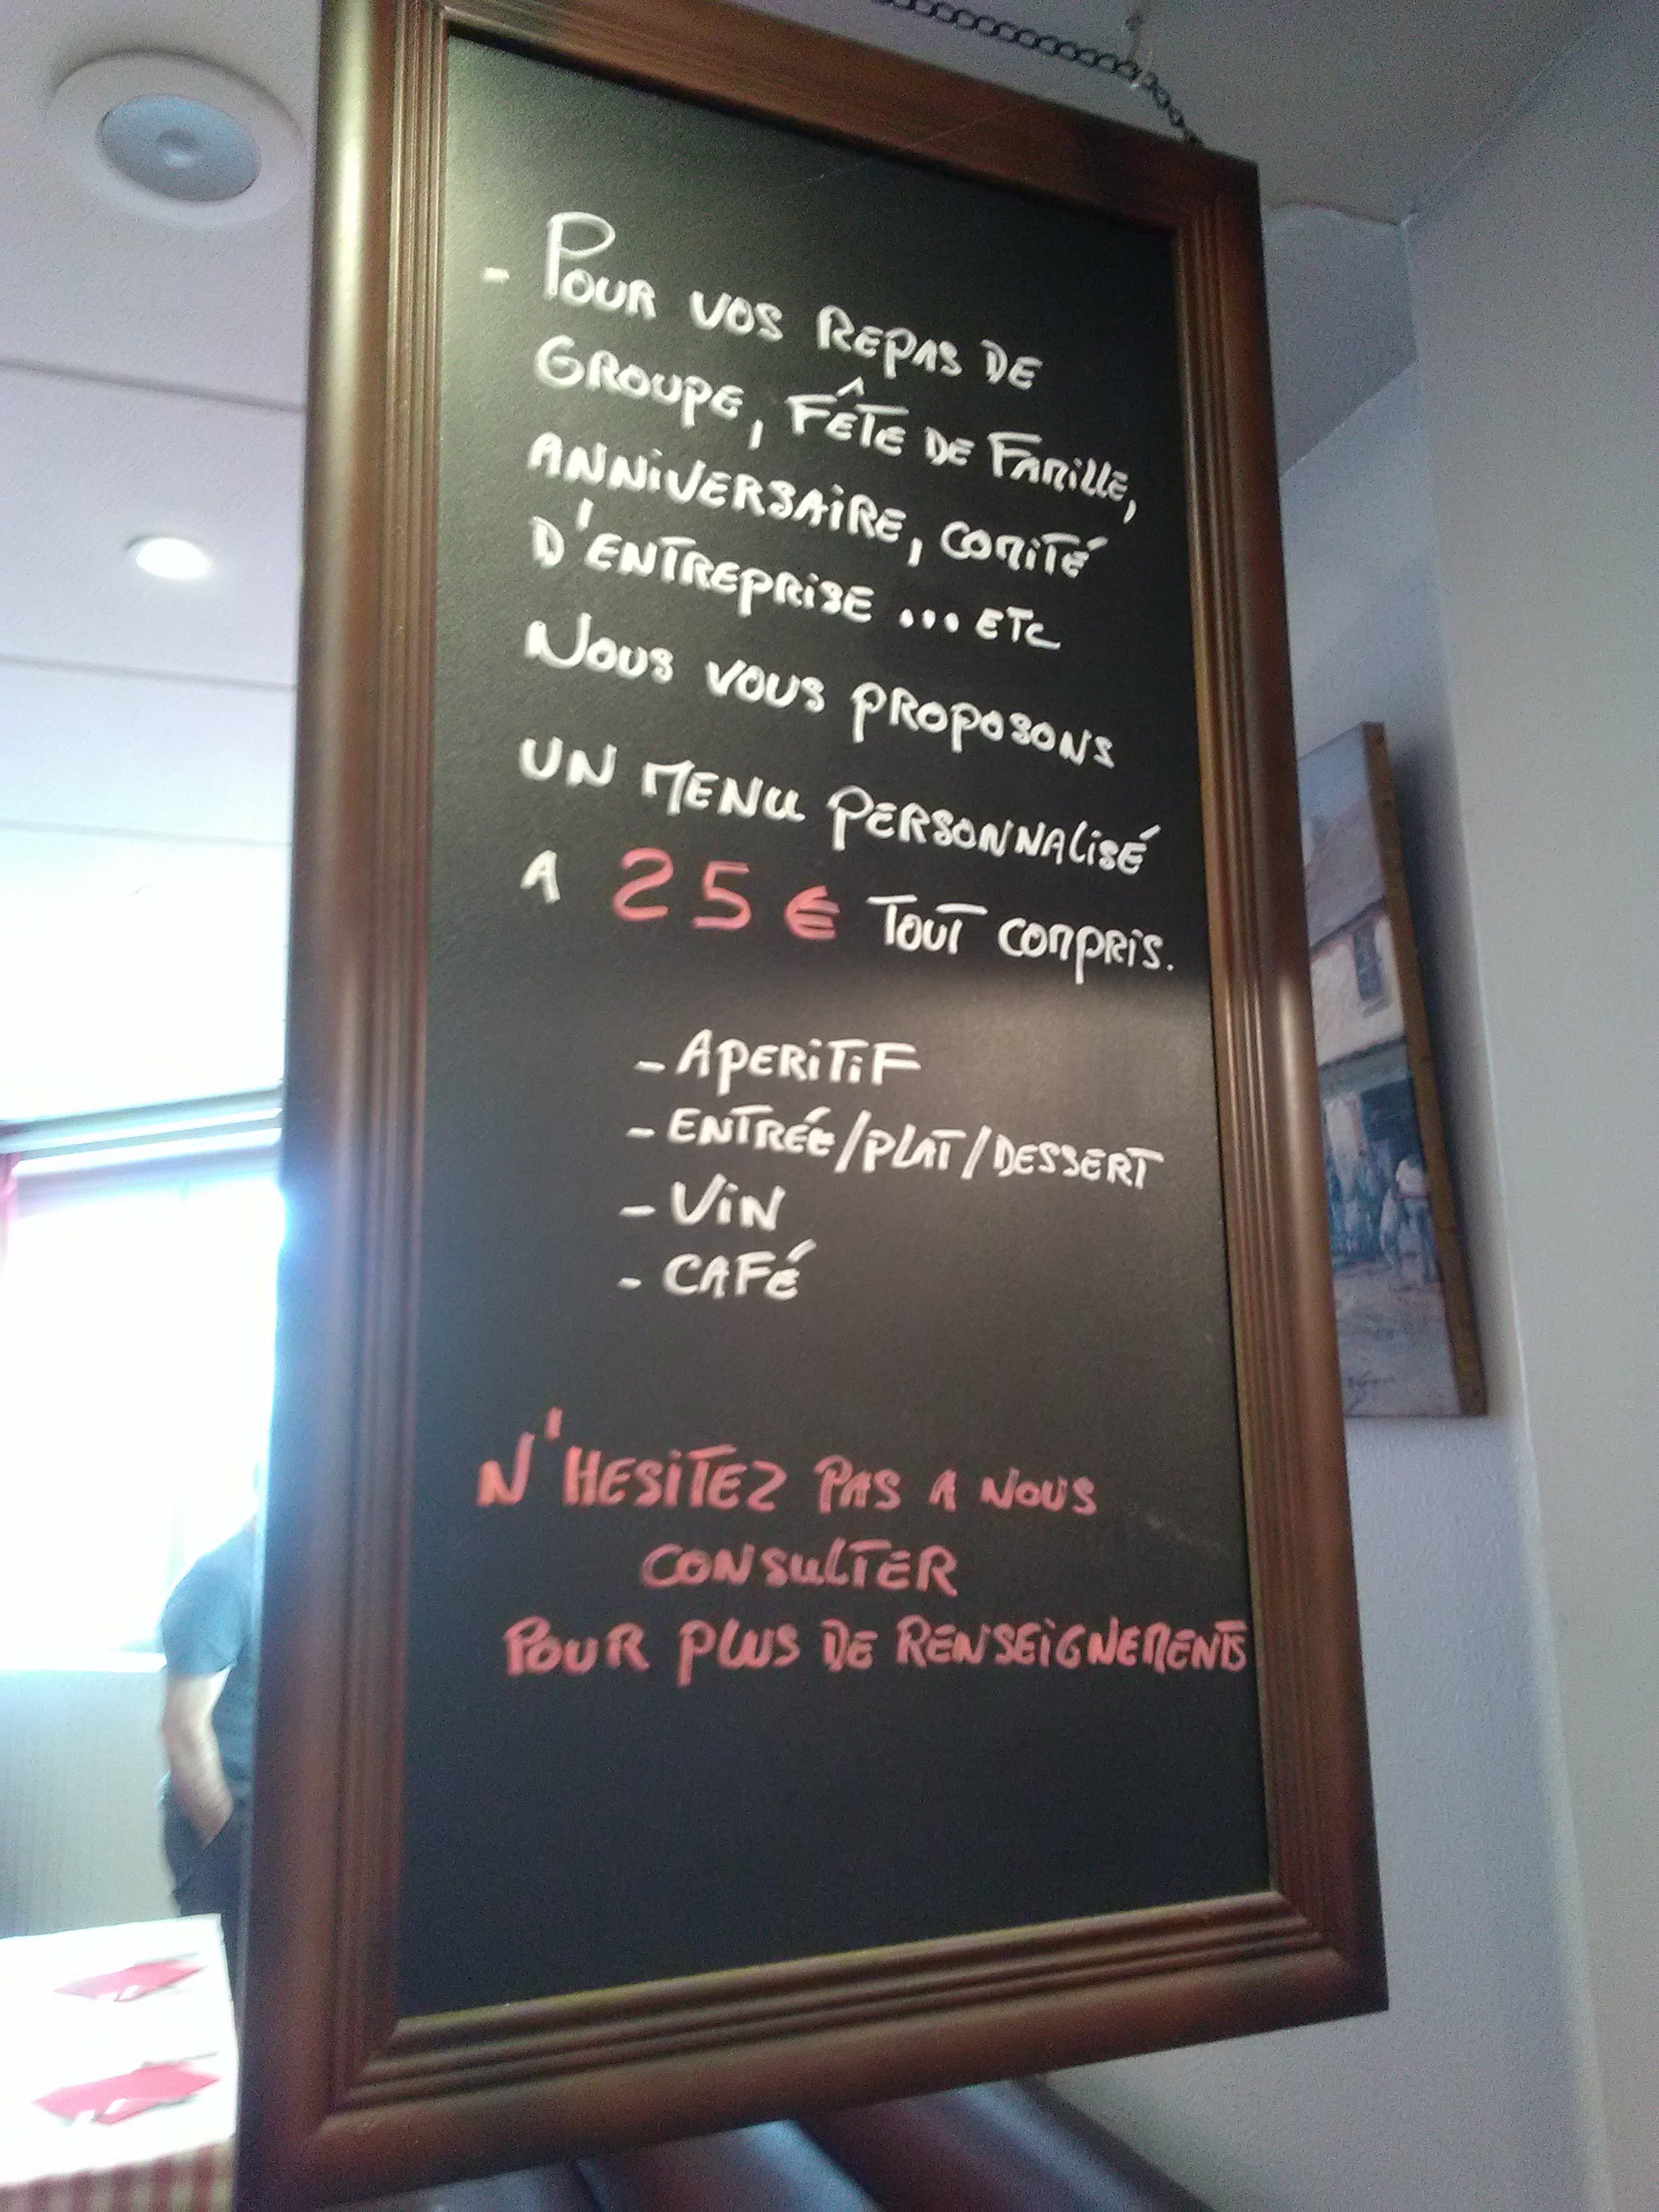 - POUR VOS REPAS DE
GROUPE, FÊTE DE FAMILLE,
ANNIVERSAIRE, COMITÉ
D'ENTREPRISE ... ETC
NOUS VOUS PROPOSONS
UN MENU PERSONNALISÉ
A 25 € TOUT COMPRIS.
- APERITIF
- ENTRÉE/PLAT/DESSERT
- VIN
- CAFÉ
N'HESITEZ PAS A NOUS
CONSULTER
POUR PLUS DE RENSEIGNEMENTS